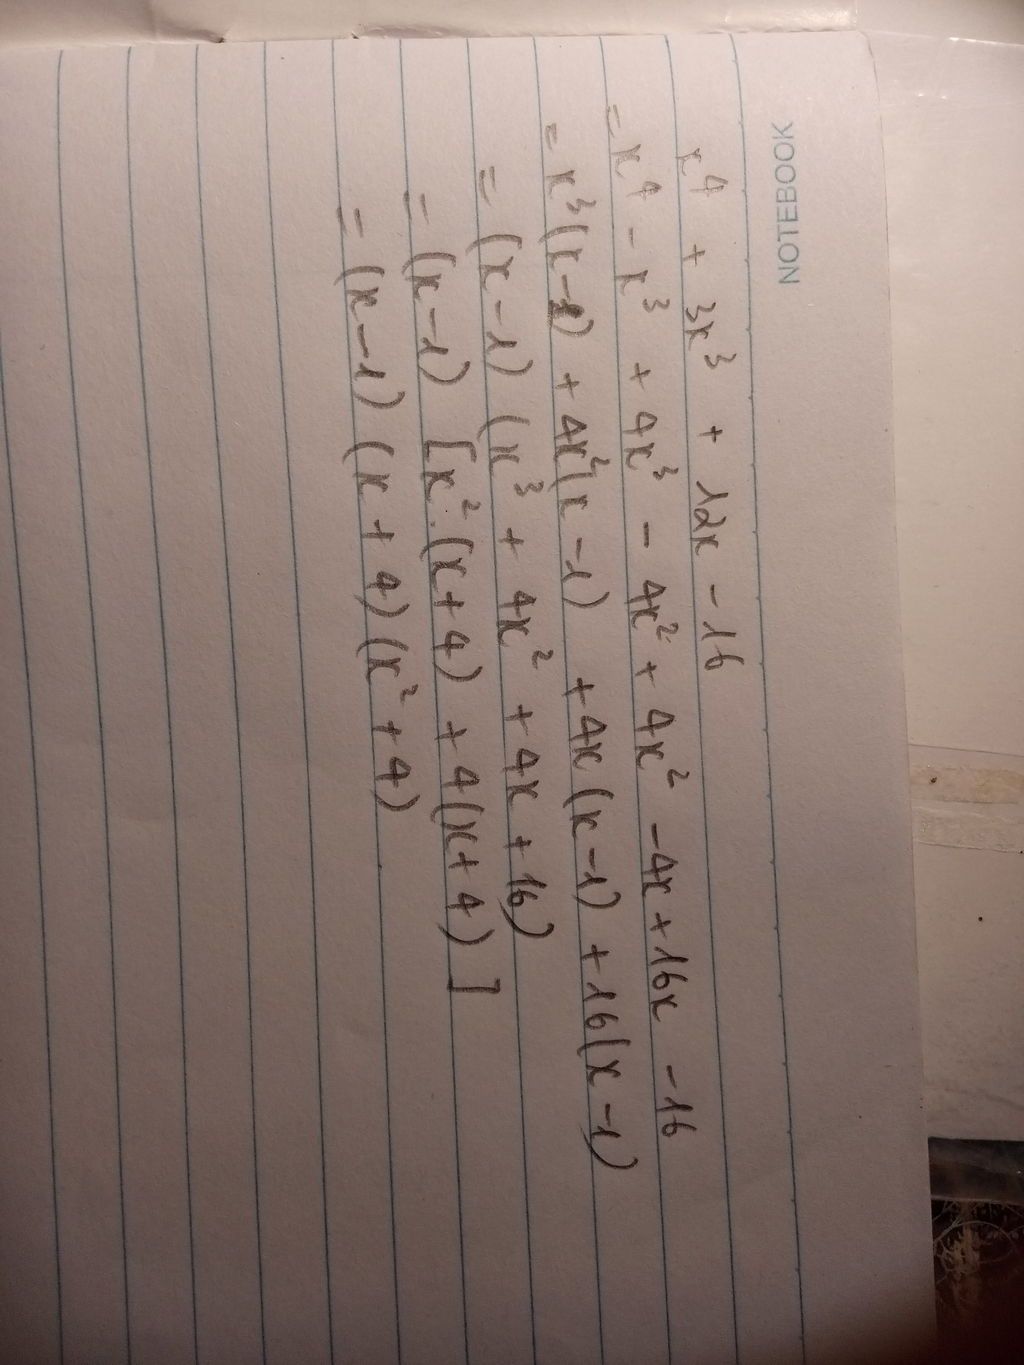 NOTEBOOK
x⁴ + 3x³ + 12x - 16
= x⁴ - x³ + 4x³ - 4x² + 4x² - 4x + 16x - 16
= x³(x-1) + 4x²(x-1) + 4x(x-1) + 16(x-1)
= (x-1) (x³ + 4x² + 4x + 16)
= (x-1) [x².(x+4) + 4(x+4)]
= (x-1) (x+4) (x²+4)